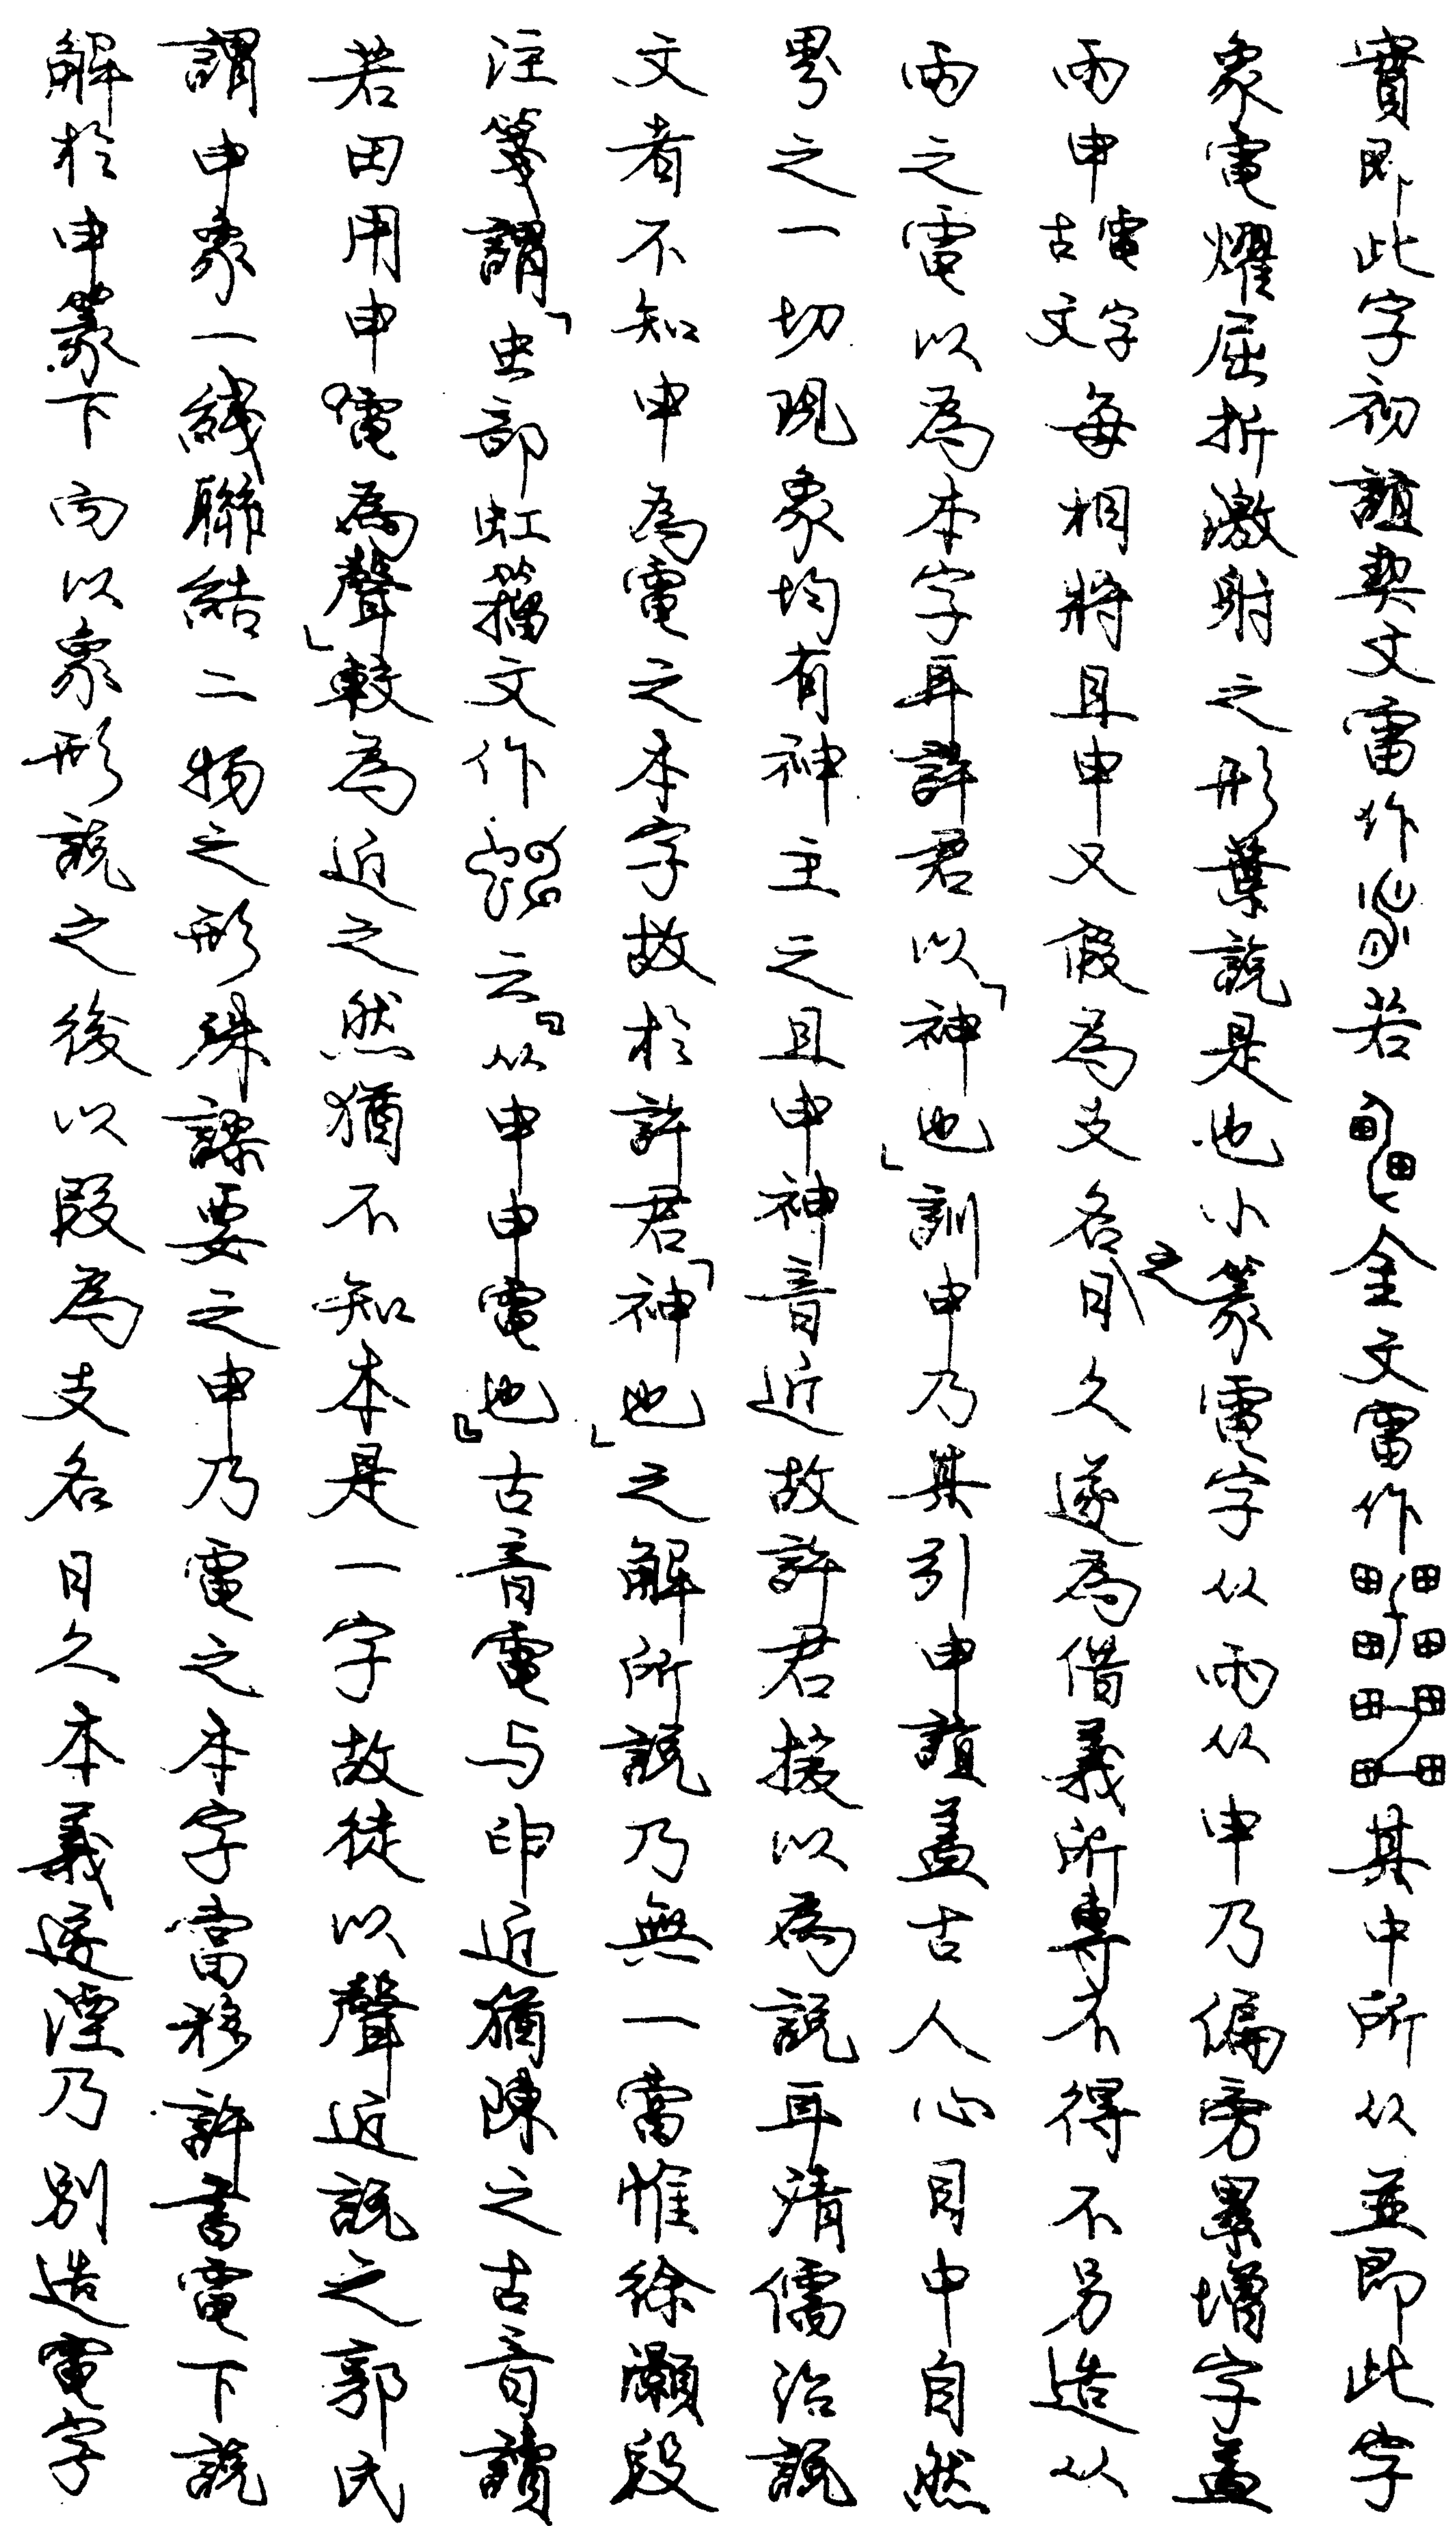 實即此字初誼契文雷作若金文雷作其中所从並即此字
象電燿屈折激射之形葉說是也小篆電字从雨从申乃偏旁累增字蓋
雨申電字古文每相將且申又假為支名之日久遂為借義所專不得不另造从
雨之電以為本字耳許君以「神也」訓申乃其引申誼蓋古人心目中自然
界之一切現象均有神主之且申神音近故許君援以為說耳清儒治說
文者不知申為電之本字故於許君「神也」之解所說乃無一當惟徐灝段
注箋謂「虫部虹籀文作云『从申申電也』古音電与申近猶陳之古音讀
若田用申電為聲」較為近之然猶不知本是一字故徒以聲近說之郭氏
謂申象一綫聯結二物之形殊謬要之申乃電之本字當移許書電下說
解於申篆下而以象形說之後以叚為支名日久本義遂湮乃別造電字